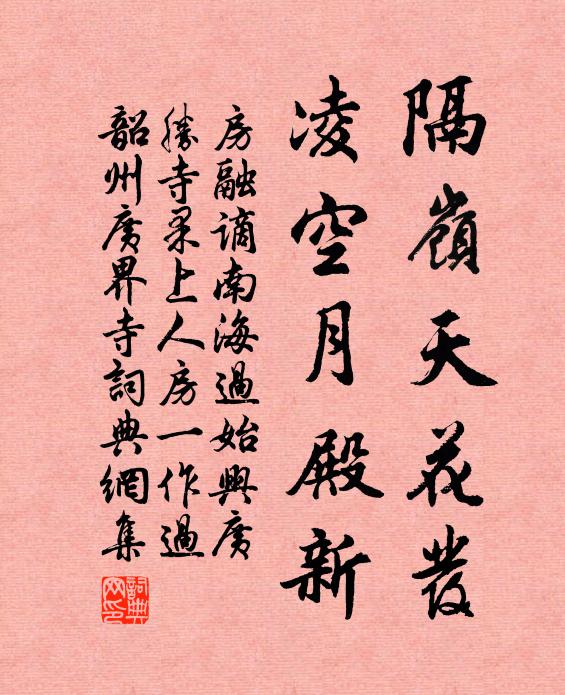 隔嶺天花發
凌空月殿新
房融謫南海過始興廣
勝寺果上人房一作過
韶州廣界寺詞典網集
詞典網印